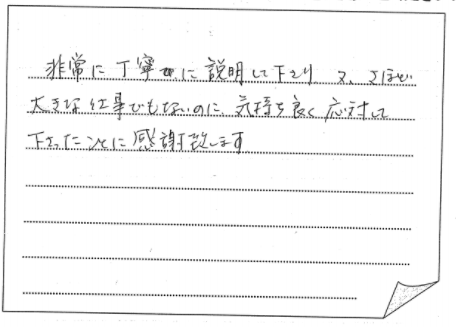 非常に丁寧に説明して下さり 又、さほど
大きな仕事でもないのに、気持ち良く応対して
下さったことに感謝致します